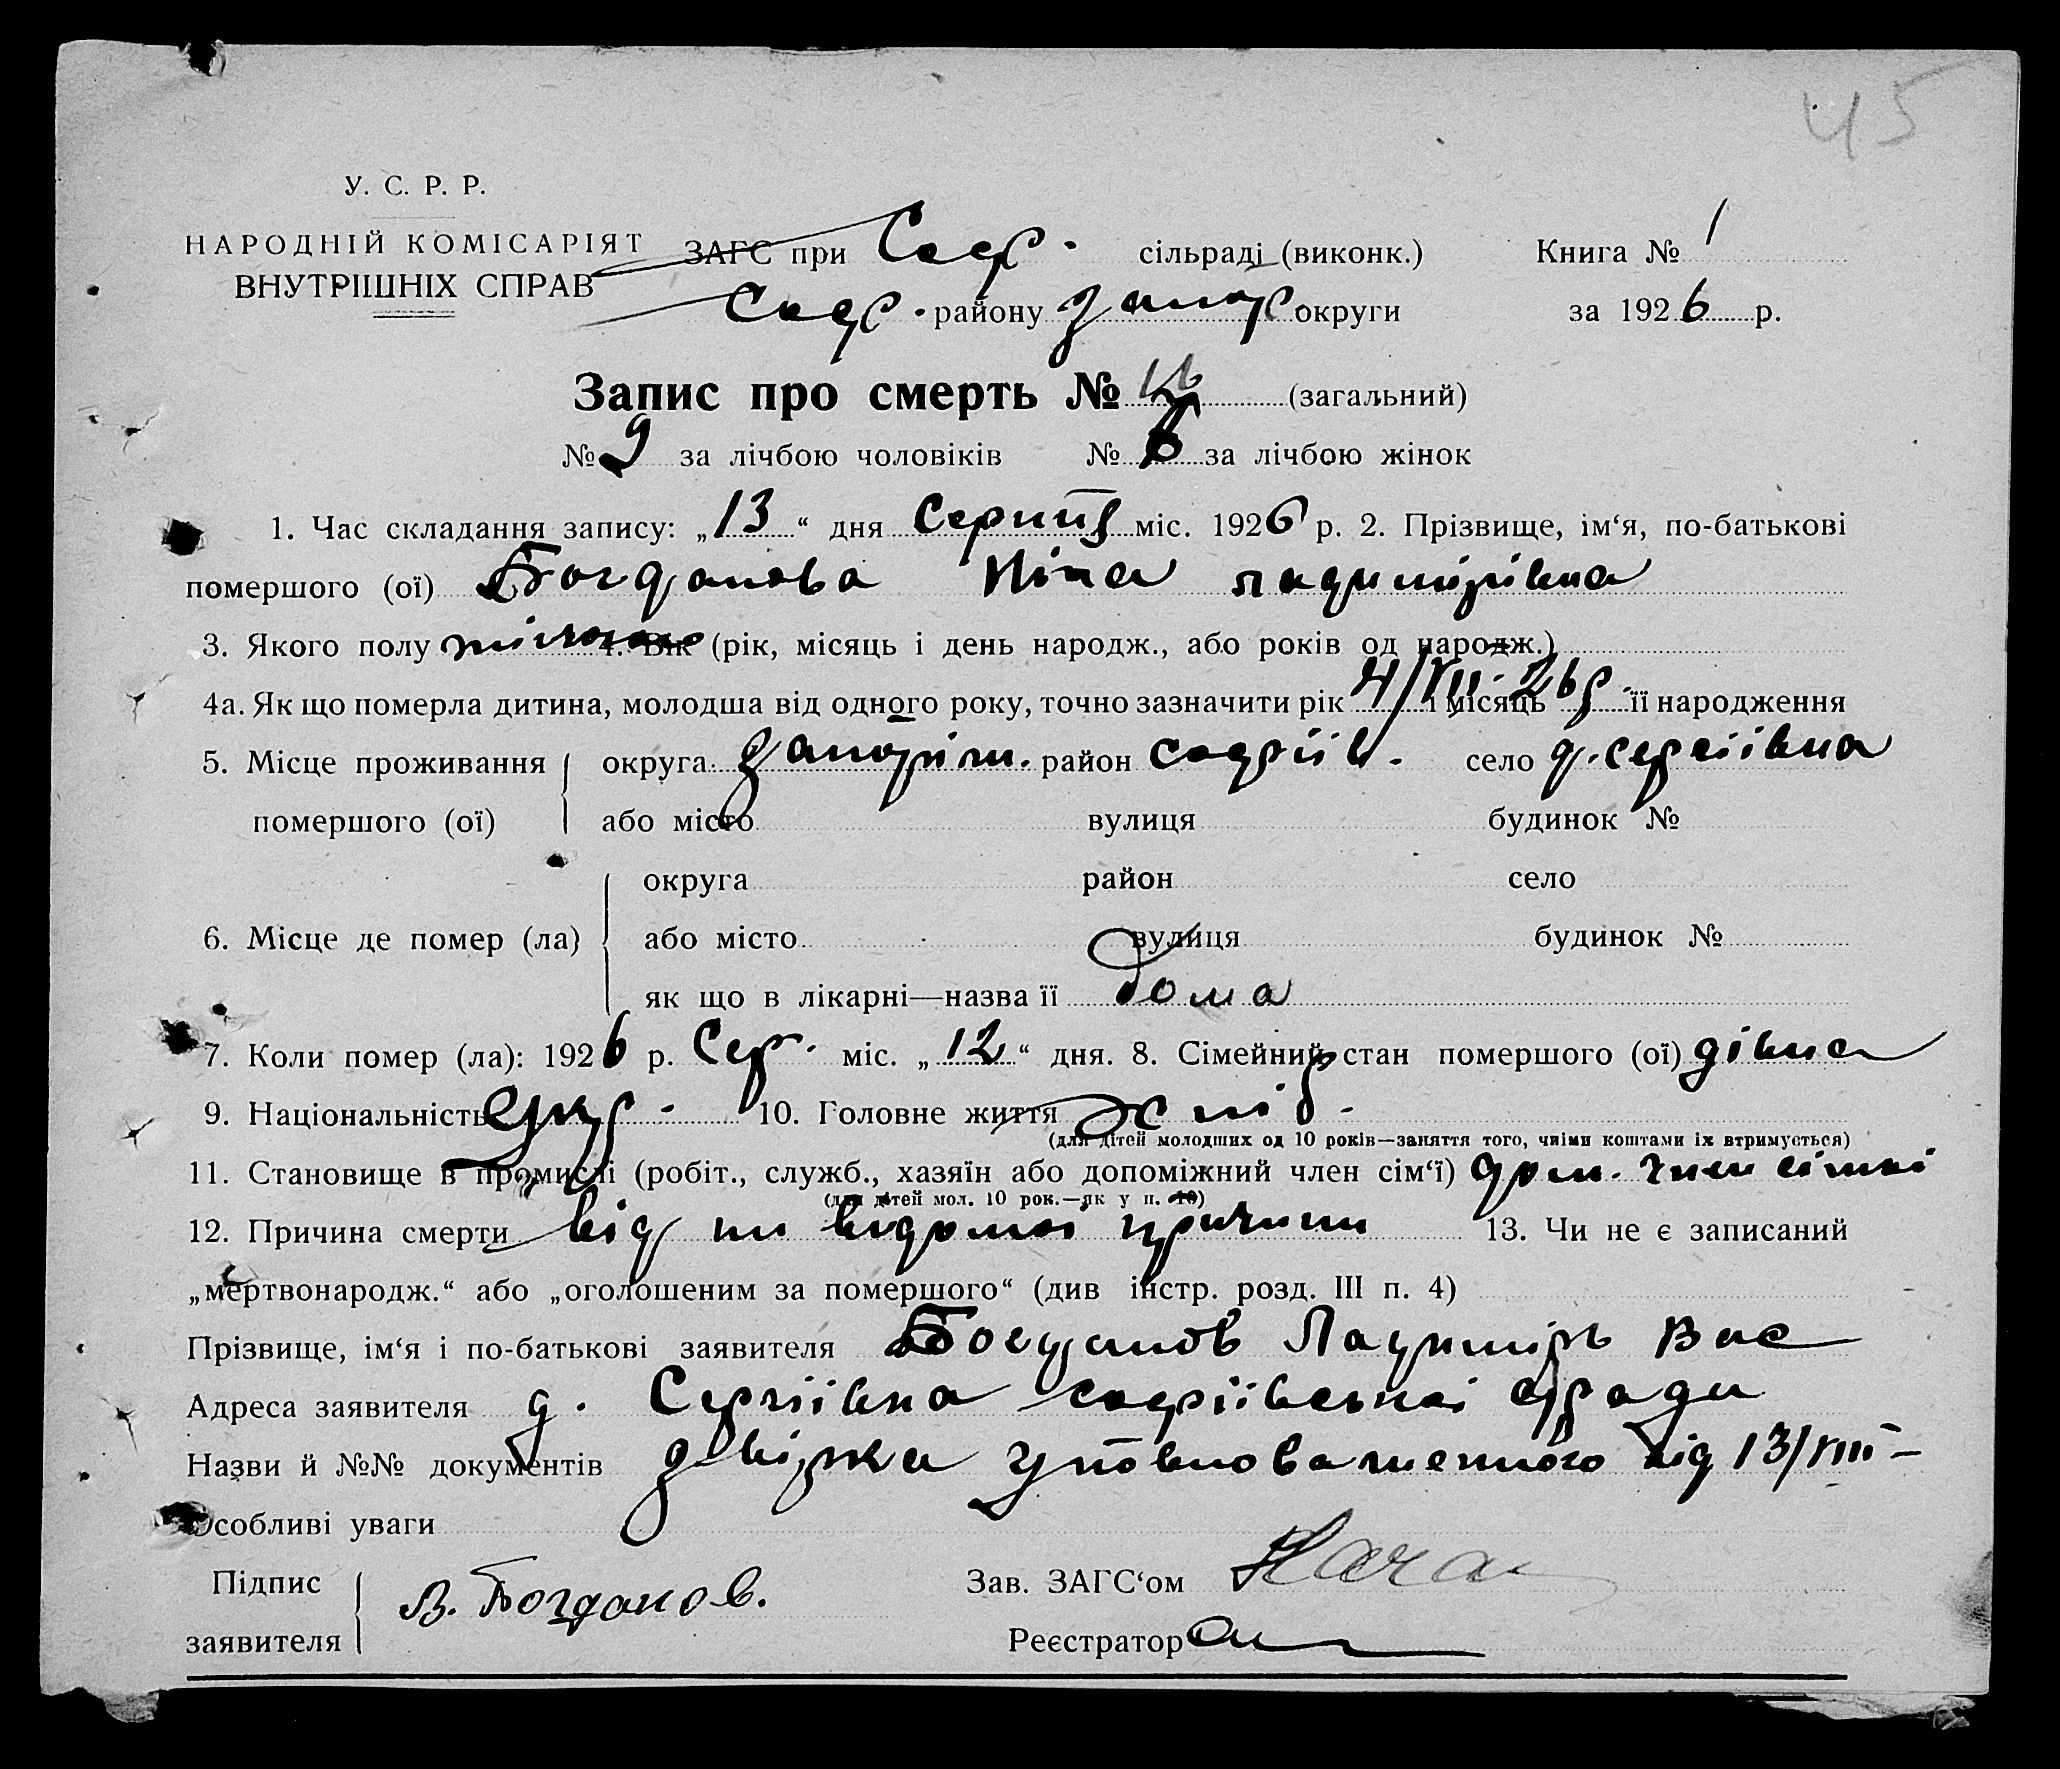 45
У. С. Р. Р.
НАРОДНІЙ КОМІСАРІЯТ
ВНУТРІШНІХ СПРАВ
ЗАГС при Соф. сільраді (виконк.) Книга № 1
Соф. району Запор округи за 1926 р.
Запис про смерть № (загальний)
№ 9 за лічбою чоловіків № за лічбою жінок
1. Час складання запису: „13“ дня Серпня міс. 1926 р. 2. Прізвище, ім‘я, по-батькові
помершого (ої) Богданова Ніна Ладимірівна
3. Якого полу жіночого 4. Вік (рік, місяць і день народж., або років од народж.)
4а. Як що померла дитина, молодша від одного року, точно зазначити рік 4/VII-26р. і місяць її народження
5. Місце проживання округа Запоріж. район Софіїв. село д. Сергіївна
помершого (ої) або місто вулиця будинок №
округа район село
6. Місце де помер (ла) або місто вулиця будинок №
як що в лікарні—назва її дома
7. Коли помер (ла): 1926 р. Сер. міс. „12“ дня. 8. Сімейний стан помершого (ої) дівка
9. Національність укр. 10. Головне життя хліб.
(для дітей молодших од 10 років—заняття того, чиїми коштами їх втримується)
11. Становище в промислі (робіт., служб., хазяїн або допоміжний член сім‘ї) дом. член сімї
(для дітей мол. 10 рок.—як у п. 10)
12. Причина смерти від ни відомої причини 13. Чи не є записаний
„мертвонародж.“ або „оголошеним за помершого“ (див інстр. розд. III п. 4)
Прізвище, ім‘я і по-батькові заявителя Богданов Ладимірь Вас
Адреса заявителя д. Сергіївна Софіївської с/ради
Назви й №№ документів Довірка уповноваженного від 13/VIII
Особливі уваги
Підпис Зав. ЗАГС‘ом
заявителя В. Богданов. Реєстратор